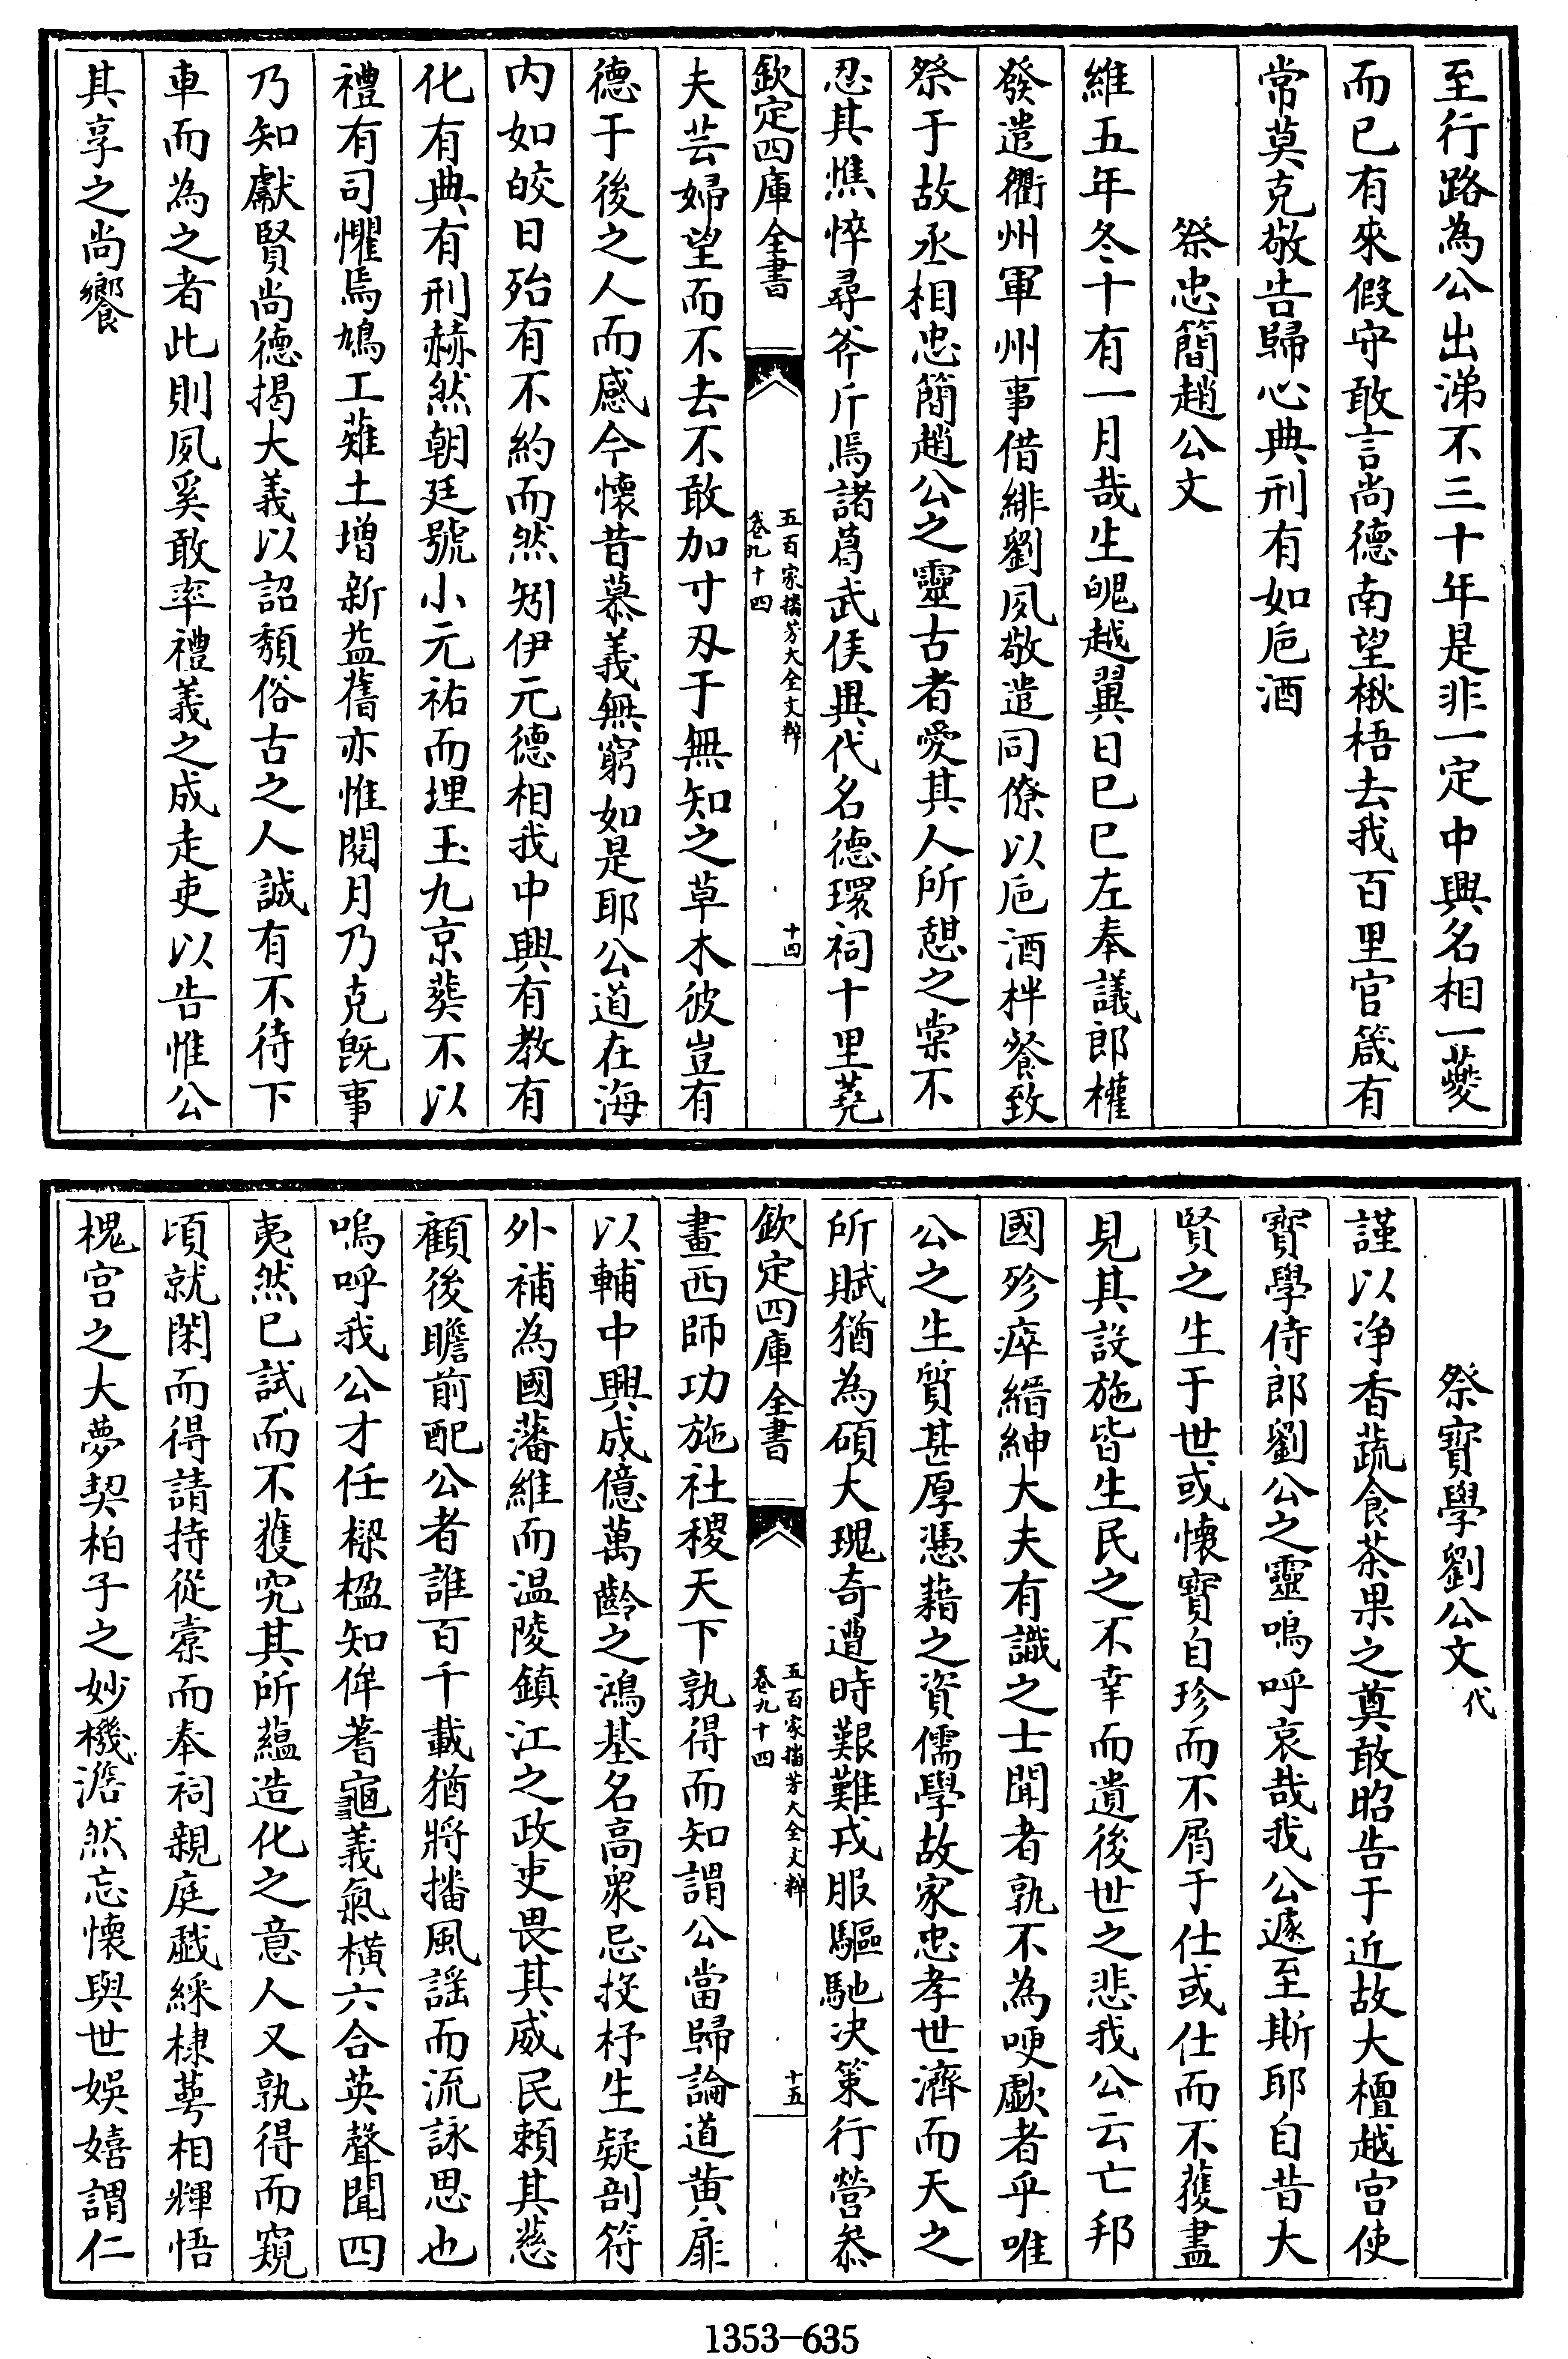 至行路為公出涕不三十年是非一定中興名相一夔
而已有來假守敢言尚德南望楸梧去我百里官箴有
常莫克敬告歸心典刑有如巵酒
祭忠簡趙公文
維五年冬十有一月哉生魄越翼日已巳左奉議郎權
發遣衢州軍州事借緋劉夙敬遣同僚以巵酒柈餐致
祭于故丞相忠簡趙公之靈古者愛其人所憩之棠不
忍其憔悴尋斧斤焉諸葛武侯異代名德環祠十里蕘
欽定四庫全書
五百家播芳大全文粹
卷九十四
十四
夫芸婦望而不去不敢加寸刃于無知之草木彼豈有
德于後之人而感今懷昔慕義無窮如是耶公道在海
内如皎日殆有不約而然矧伊元德相我中興有教有
化有典有刑赫然朝廷號小元祐而埋玉九京葬不以
禮有司懼焉鳩工薙土增新益舊亦惟閱月乃克旣事
乃知獻賢尚德揭大義以詔頽俗古之人誠有不待下
車而為之者此則夙奚敢率禮義之成走吏以告惟公
其享之尚饗
祭寳學劉公文代
謹以净香蔬食茶果之奠敢昭告于近故大檀越宫使
寳學侍郎劉公之靈嗚呼哀哉我公遽至斯耶自昔大
賢之生于世或懷寳自珍而不屑于仕或仕而不獲盡
見其設施皆生民之不幸而遺後世之悲我公云亡邦
國殄瘁縉紳大夫有識之士聞者孰不為哽歔者乎唯
公之生質甚厚憑藉之資儒學故家忠孝世濟而天之
所賦猶為碩大瑰奇遭時艱難戎服驅馳决策行營叅
欽定四庫全書
五百家播芳大全文粹
卷九十四
十五
畫西師功施社稷天下孰得而知謂公當歸論道黄扉
以輔中興成億萬齡之鴻基名高衆忌投杼生疑剖符
外補為國藩維而温陵鎮江之政吏畏其威民頼其慈
顧後瞻前配公者誰百千載猶將播風謡而流詠思也
嗚呼我公才任樑楹知侔蓍龜義氣橫六合英聲聞四
夷然已試而不獲究其所蘊造化之意人又孰得而窺
頃就閑而得請持從橐而奉祠親庭戲綵棣蕚相輝悟
槐宫之大夢契柏子之妙機澹然忘懷與世娛嬉謂仁
1353-635